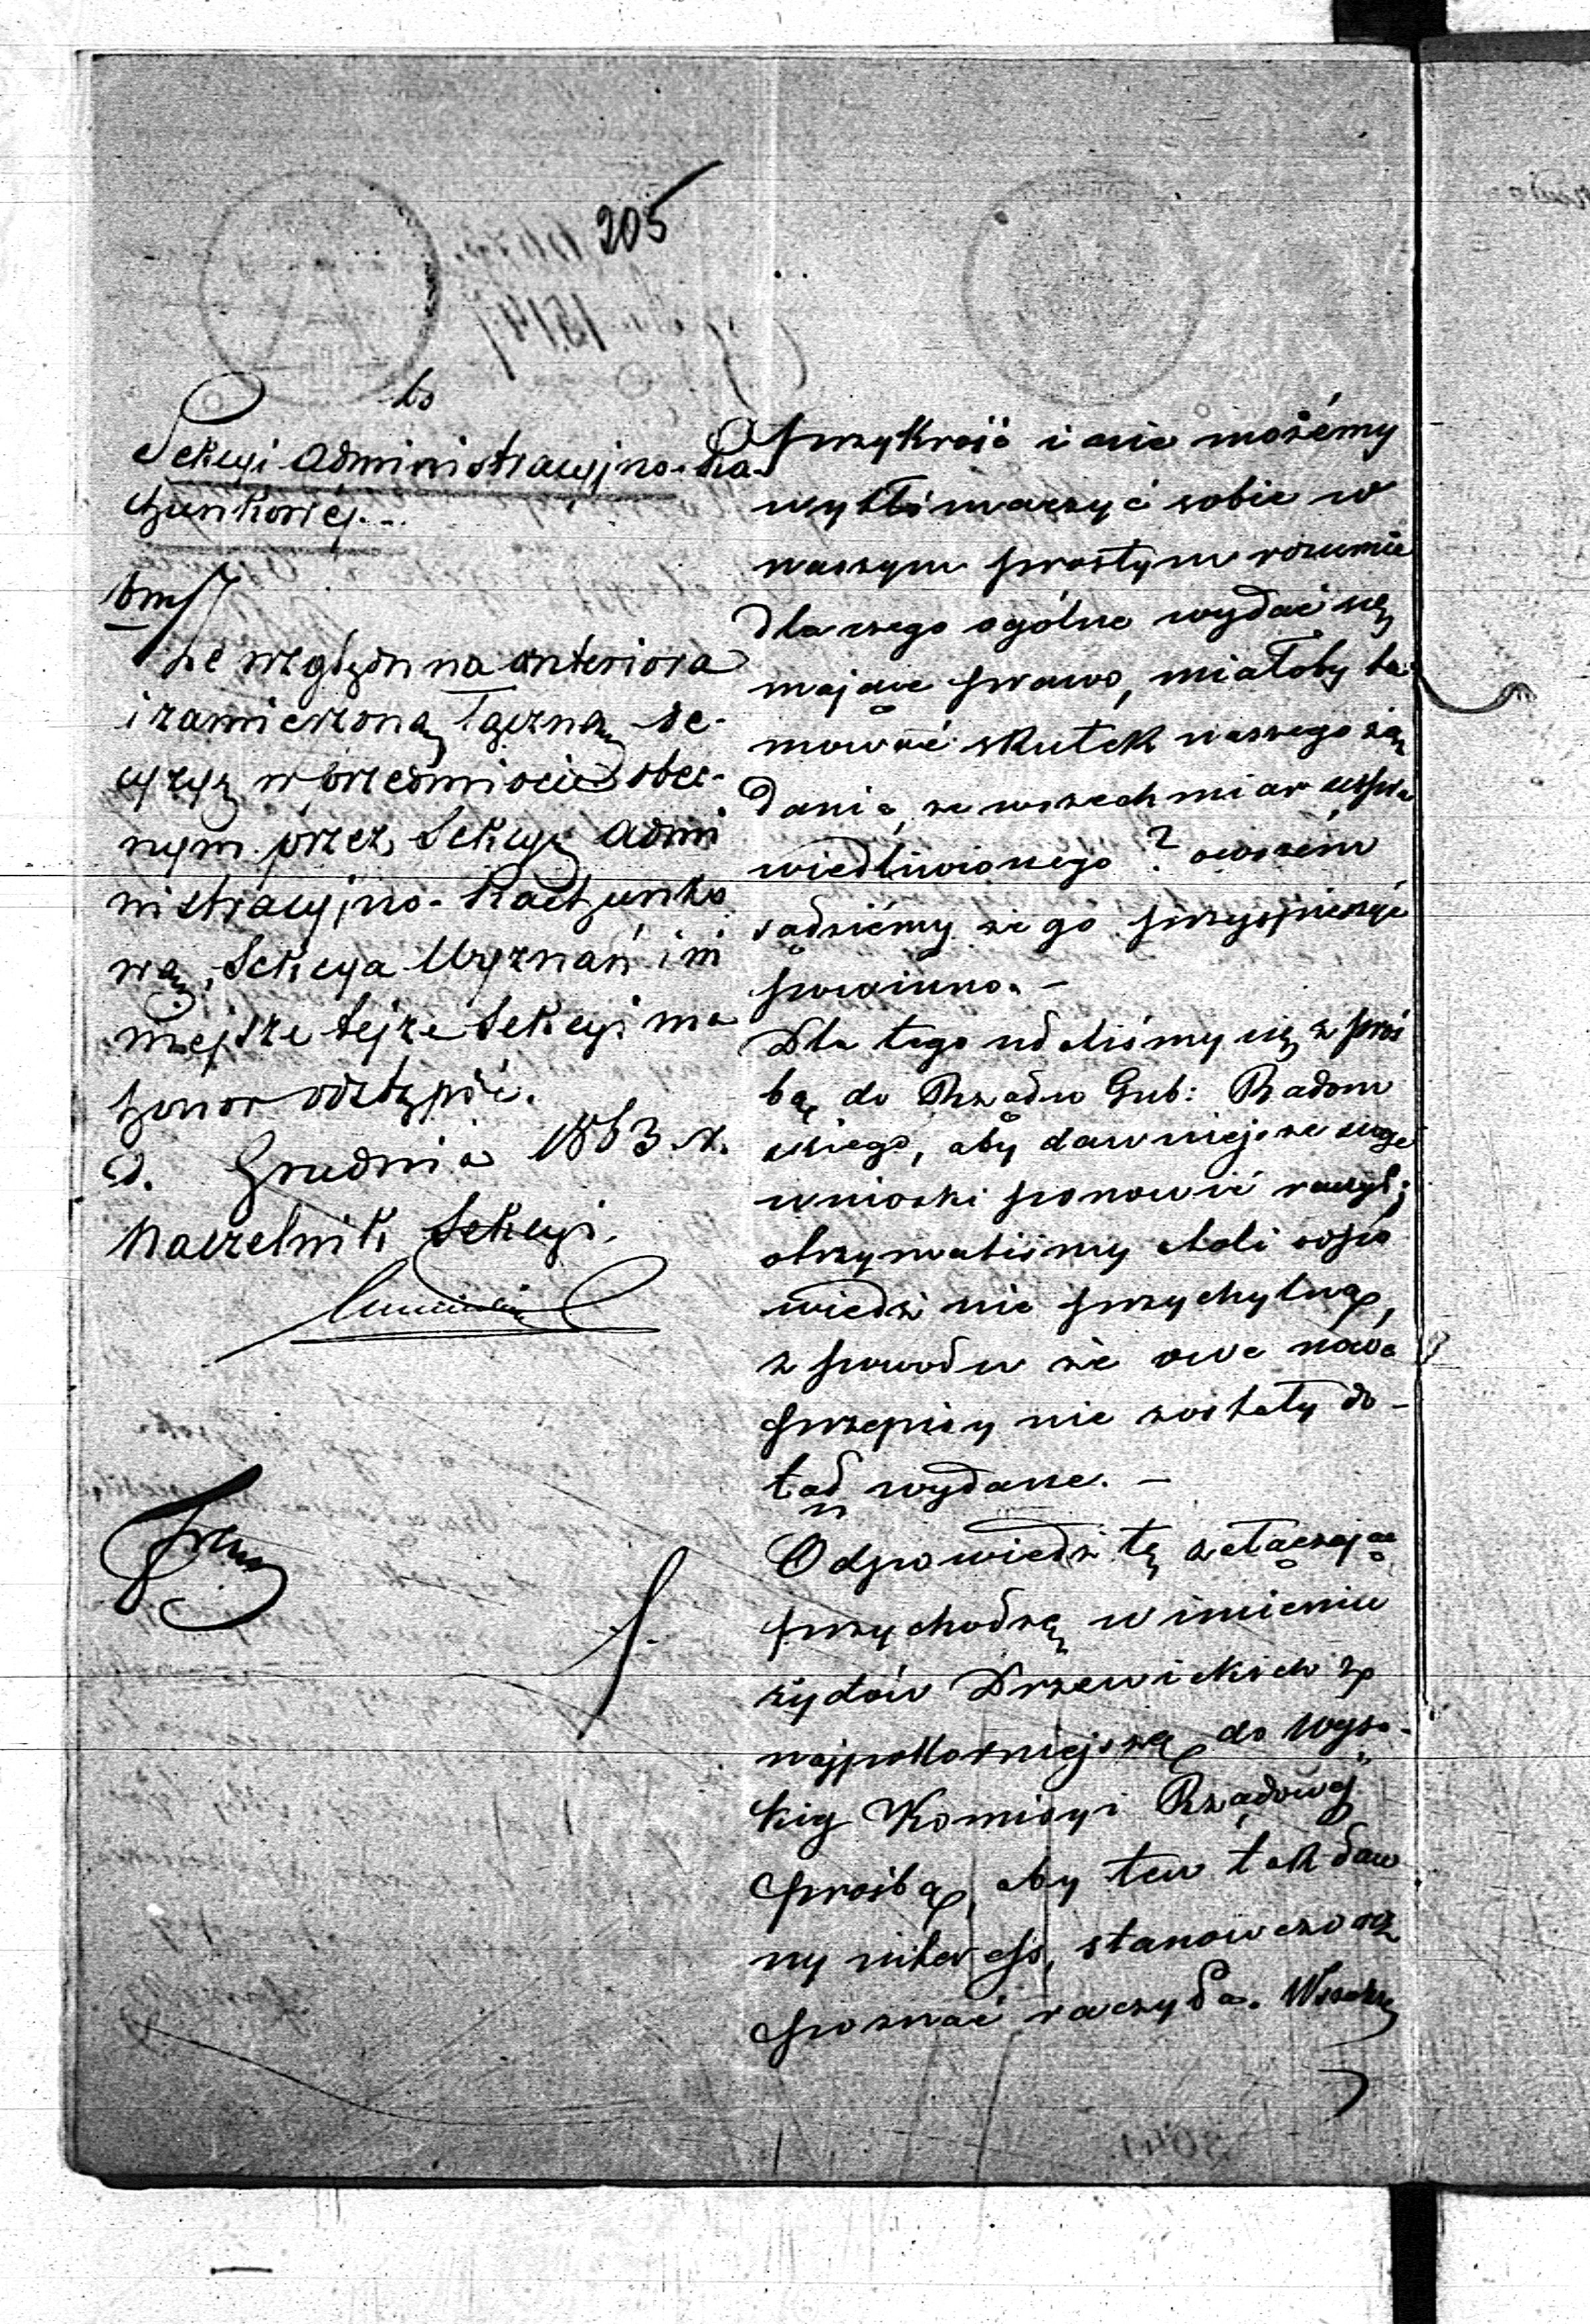 205
Do
Sekcyi Administracyjno-Ra-
chunkowéj.
Ze względu na anteriora
i zamierzoną łączną de-
cyzyą w przedmiocie obec-
nym przez Sekcyę Admi
nistracyjno-Rachunko
wą, Sekcya Wyznań ni
niejsze tejże Sekcyi ma
honor odstąpić.
d. Grudnia 1863 r.
Naczelnik Sekcyi.
przykrość i nie możémy
wytłómaczyć sobie w
naszym prostym rozumie
dla czego ogólne wydać się
mające prawo, miałoby ta
mować skutek naszego żą
dania, ze wszech miar uspra
wiedliwionego? owszem
sądziémy że go przyspieszyć
powinno. –
Dla tego udaliśmy się z proś
bą do Rządu Gub: Radom
skiego, aby dawniejsze swoje
wnioski ponowić raczył;
otrzymaliśmy atoli odpo
wiedź nie przychylną,
z powodu że owe nowe
przepisy nie zostały do-
tąd wydane. –
Odpowiedź tę załączając
przychodzę w imieniu
żydów Drzewickich z
najpokorniejszą do Wyso-
kiej Komisyi Rządowej
prośbą, aby ten tak daw
ny interess, stanowczo roz
poznać raczyła.